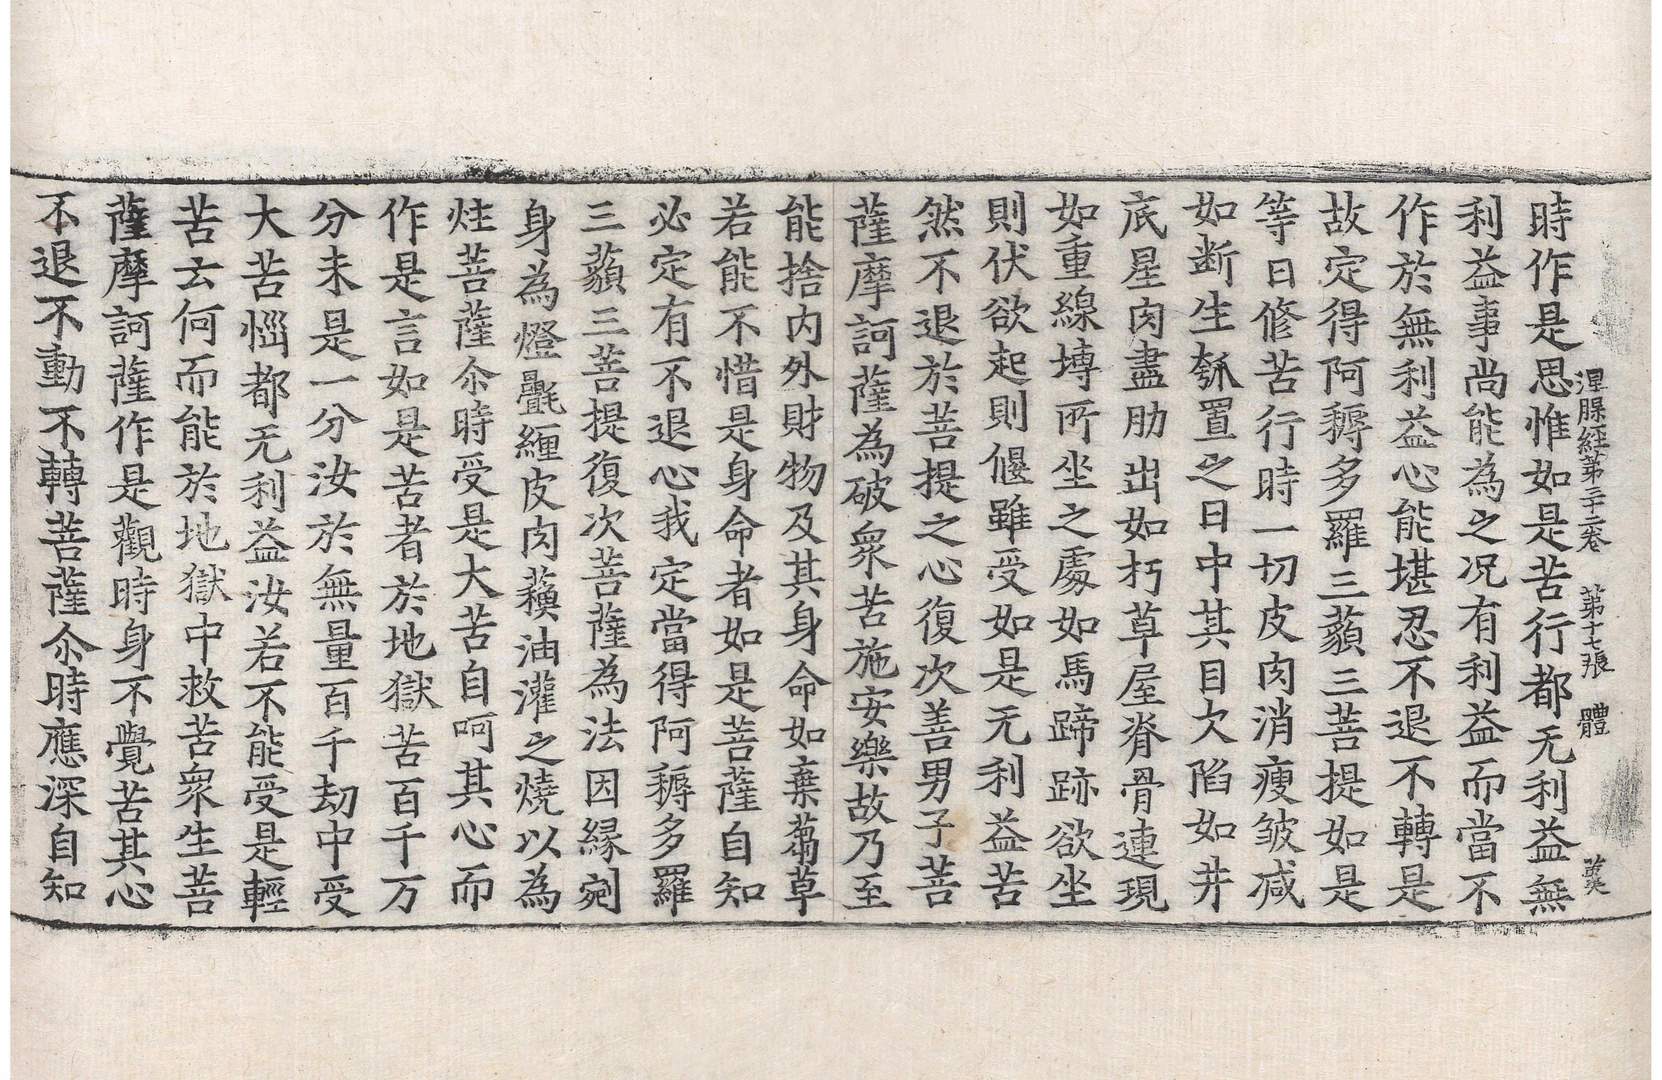 涅槃經第三十二卷 第十七張 體 英
時作是思惟如是苦行都无利益無
利益事尚能為之况有利益而當不
作於無利益心能堪忍不退不轉是
故定得阿耨多羅三藐三菩提如是
等日修苦行時一切皮肉消瘦皱減
如断生瓠置之日中其目欠陷如井
底星肉盡肋出如朽草屋脊骨連現
如重線塼所坐之處如馬蹄跡欲坐
則伏欲起則偃雖受如是无利益苦
然不退於菩提之心復次善男子菩
薩摩訶薩為破衆苦施安樂故乃至
能捨内外財物及其身命如棄蒭草
若能不惜是身命者如是菩薩自知
必定有不退心我定當得阿耨多羅
三藐三菩提復次菩薩為法因縁剜
身為燈氎纏皮肉蘓油灌之燒以為
炷菩薩尒時受是大苦自呵其心而
作是言如是苦者於地獄苦百千万
分未是一分汝於無量百千劫中受
大苦惱都无利益汝若不能受是輕
苦云何而能於地獄中救苦衆生菩
薩摩訶薩作是觀時身不覺苦其心
不退不動不轉菩薩尒時應深自知